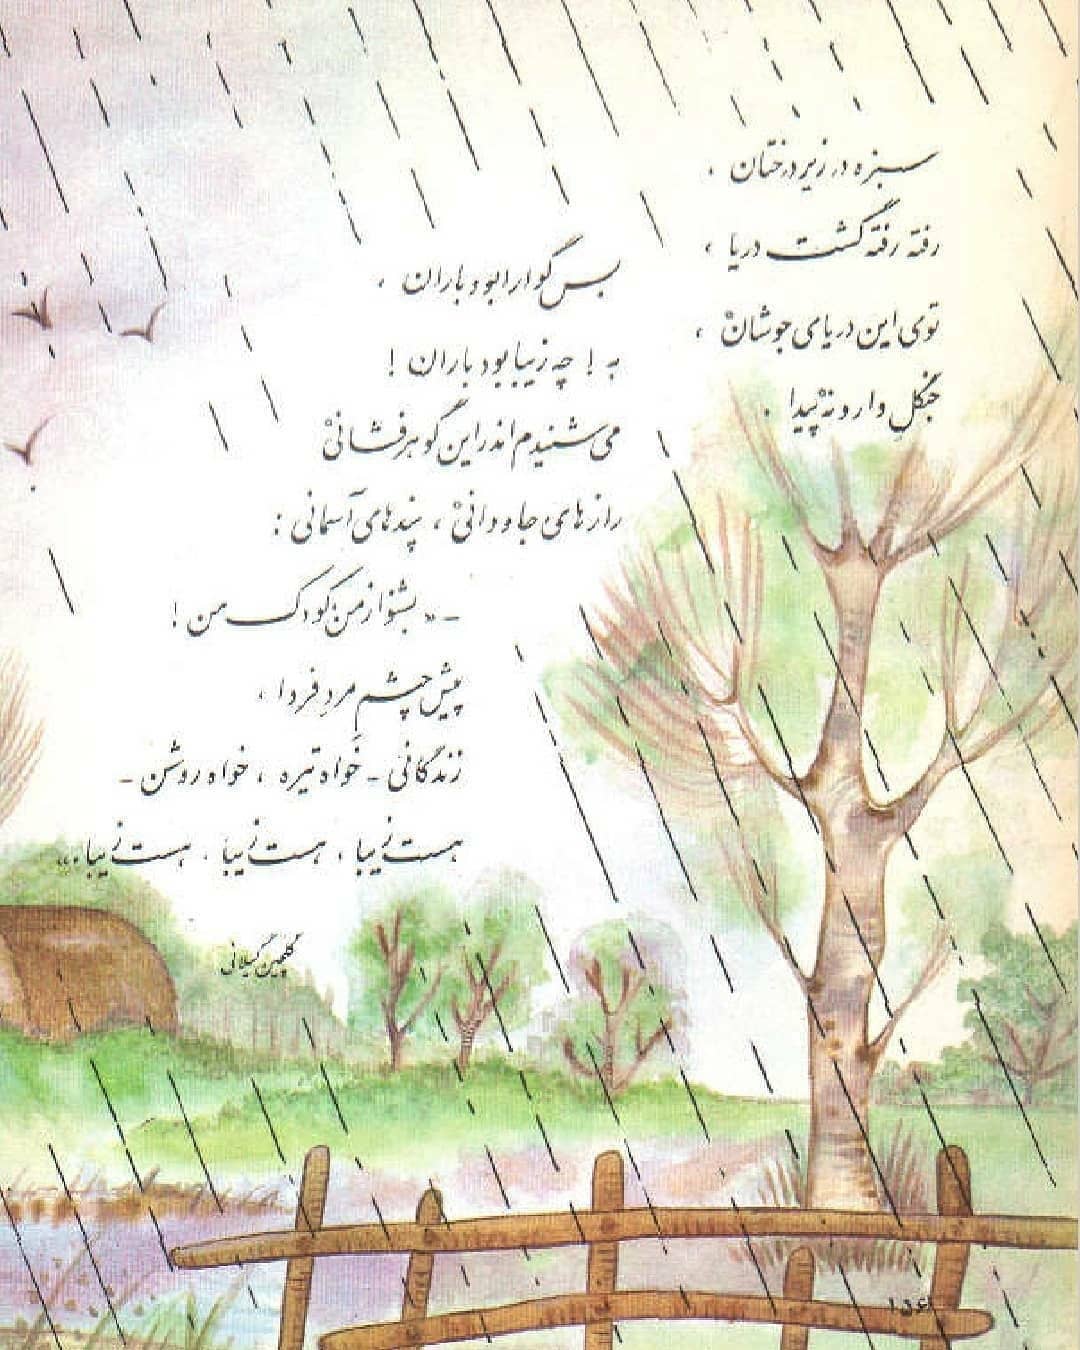 سبزه در زیر درختان ،
رفته رفته گشت دریا ،
توی این دریای جوشانْ ،
جنگلِ وارونهْ پیدا .
بس گوارا بود باران ،
به ! چه زیبا بود باران !
می‌شنیدم اندر این گوهرفشانیْ
رازهای جاودانیْ ، پندهای آسمانی :
ـ « بشنو از من کودک من !
پیش چشمِ مردِ فردا ،
زندگانی ـ خَواه تیره ، خواه روشن ـ
هست زیبا ، هست زیبا ، هست زیبا . »
گلچین گیلانی
۱۵۶